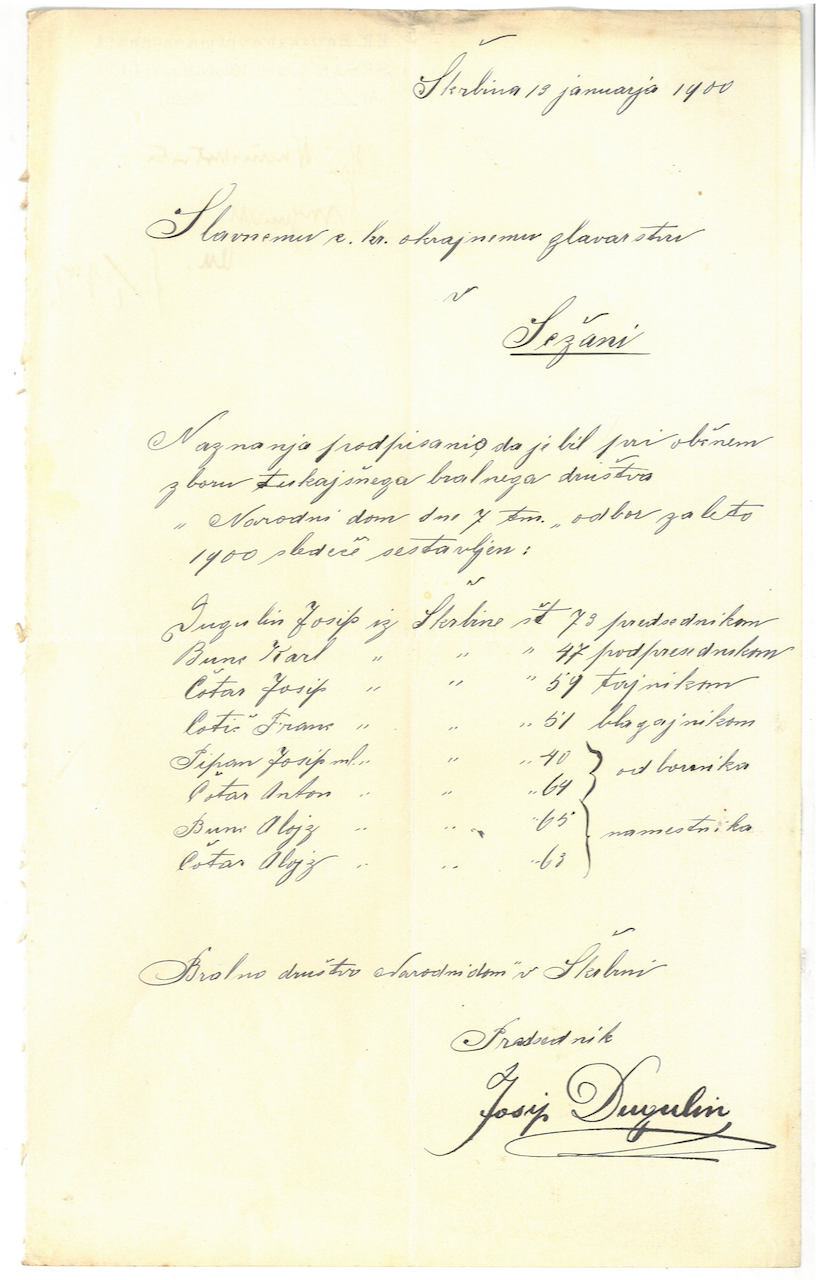 Škrbina 13 januarja 1900
Slavnemu c. kr. okrajnemu glavarstvu
v
Sežani
Naznanja podpisani, da je bil pri občnem
zboru tukajšnega bralnega društva
„ Narodni dom dne 7 tm. „ odbor za leto
1900 sledeče sestavljen :
Dugulin Josip iz Škrbine št 73 predsednikom
Bunc Karl „ „ " 47 podpresednikom
Čotar Josip „ „ " 59 tajnikom
Cotič Franc „ „ " 51 blagajnikom
Pipan Josip ml. „ „ " 40 odbornika
Čotar Anton „ „ " 64
Bunc Alojz „ „ " 65 namestnika
Čotar Alojz „ „ " 63
Bralno društvo „Narodni dom" v Škrbini
Predsednik
Josip Dugulin